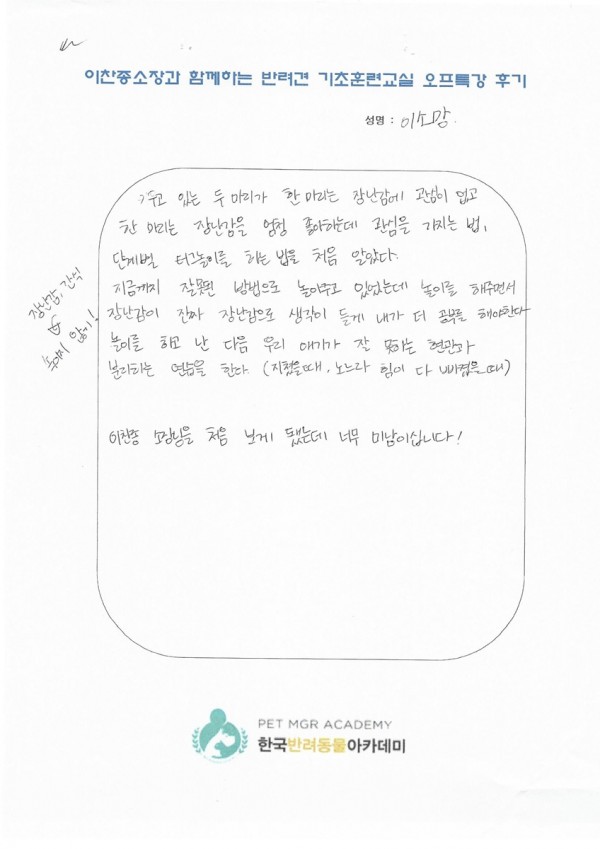 이찬종소장과 함께하는 반려견 기초훈련교실 오프특강 후기
성명 : 이소망.
키우고 있는 두 마리가 한 마리는 장난감에 관심이 없고
한 마리는 장난감을 엄청 좋아하는데 관심을 가지는 법,
단계별 터그놀이를 하는 법을 처음 알았다.
지금까지 잘못된 방법으로 놀아주고 있었는데 놀이를 해주면서
장난감이 진짜 장난감으로 생각이 들게 내가 더 공부를 해야한다
놀이를 하고 난 다음 우리 애기가 잘 못하는 현관과
분리되는 연습을 한다. (지쳤을때, 노느라 힘이 다 빠졌을때)
장난감, 간식
놓치지 않기!
이찬종 소장님을 처음 보게 됐는데 너무 미남이십니다!
PET MGR ACADEMY
한국반려동물아카데미